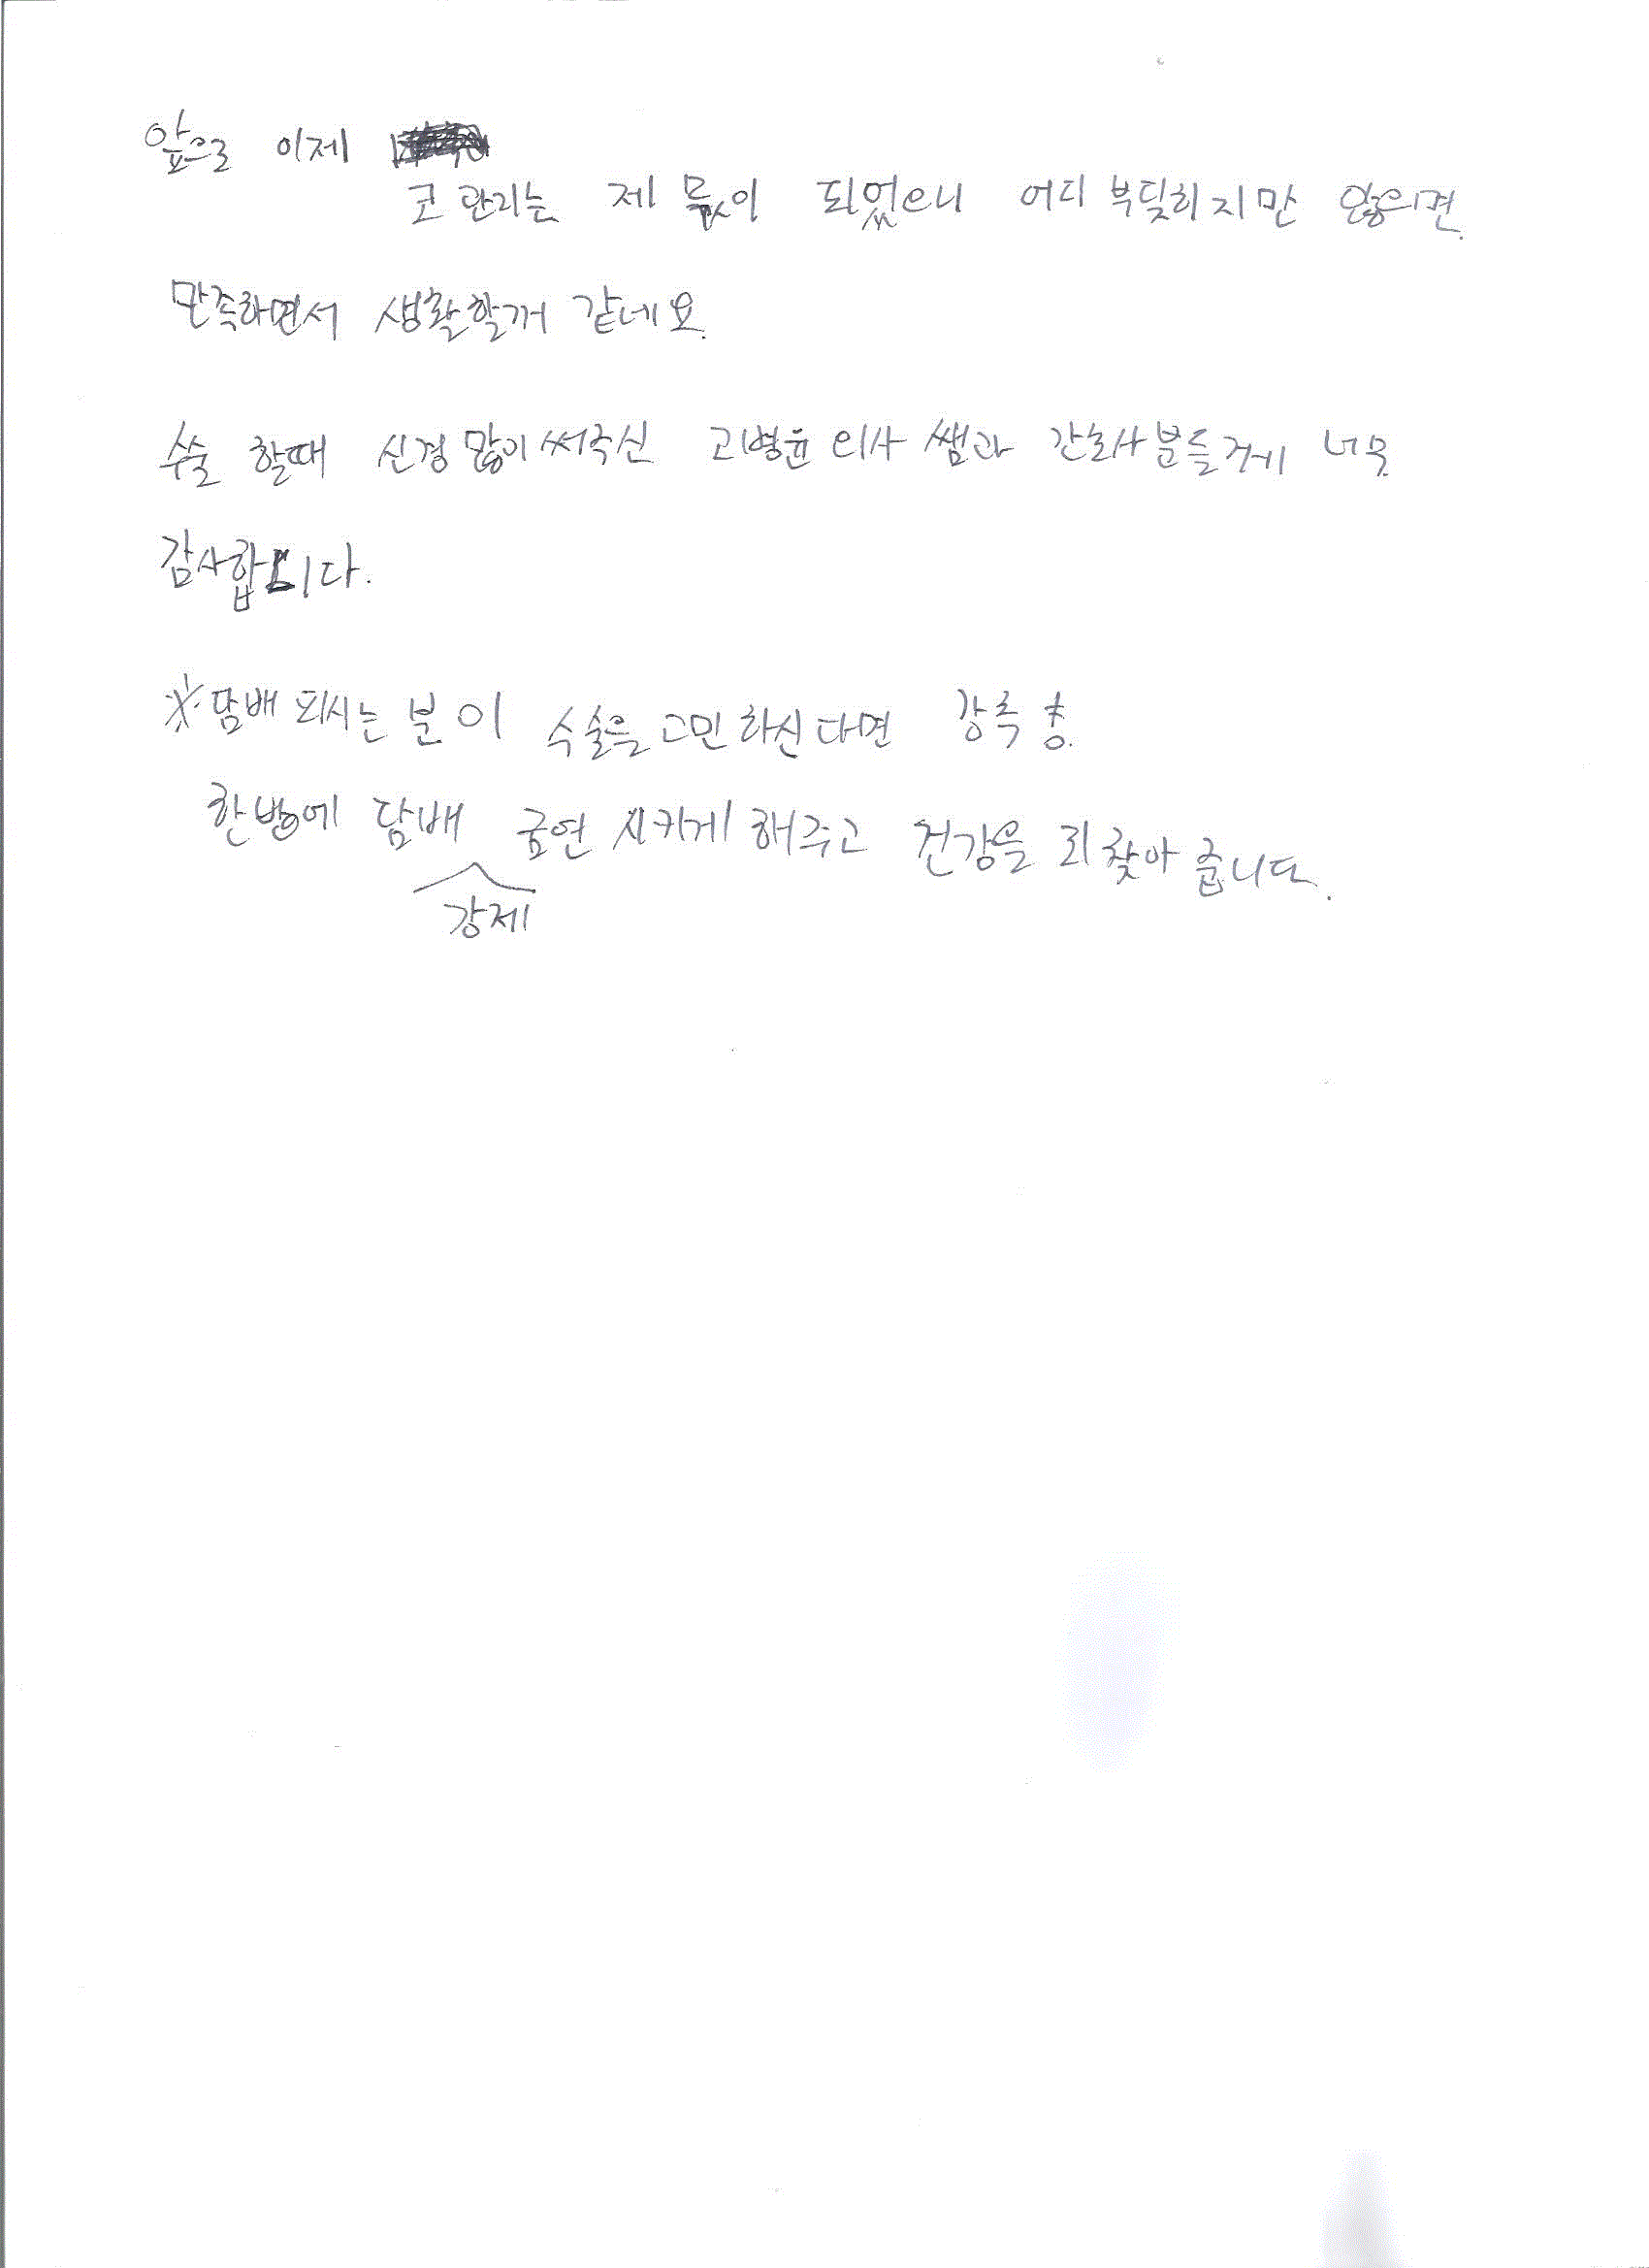 앞으로 이제
코 관리는 제 몫이 되었으니 어디 부딪히지만 않으면
만족하면서 생활할꺼 같네요.
수술 할때 신경 많이써주신 고병윤 의사 쌤과 간호사분들게 너무
감사합니다.
※담배 피시는 분이 수술을 고민 하신다면 강추
한방에 담배 금연 시키게 해주고 건강을 되찾아 줍니다.
강제